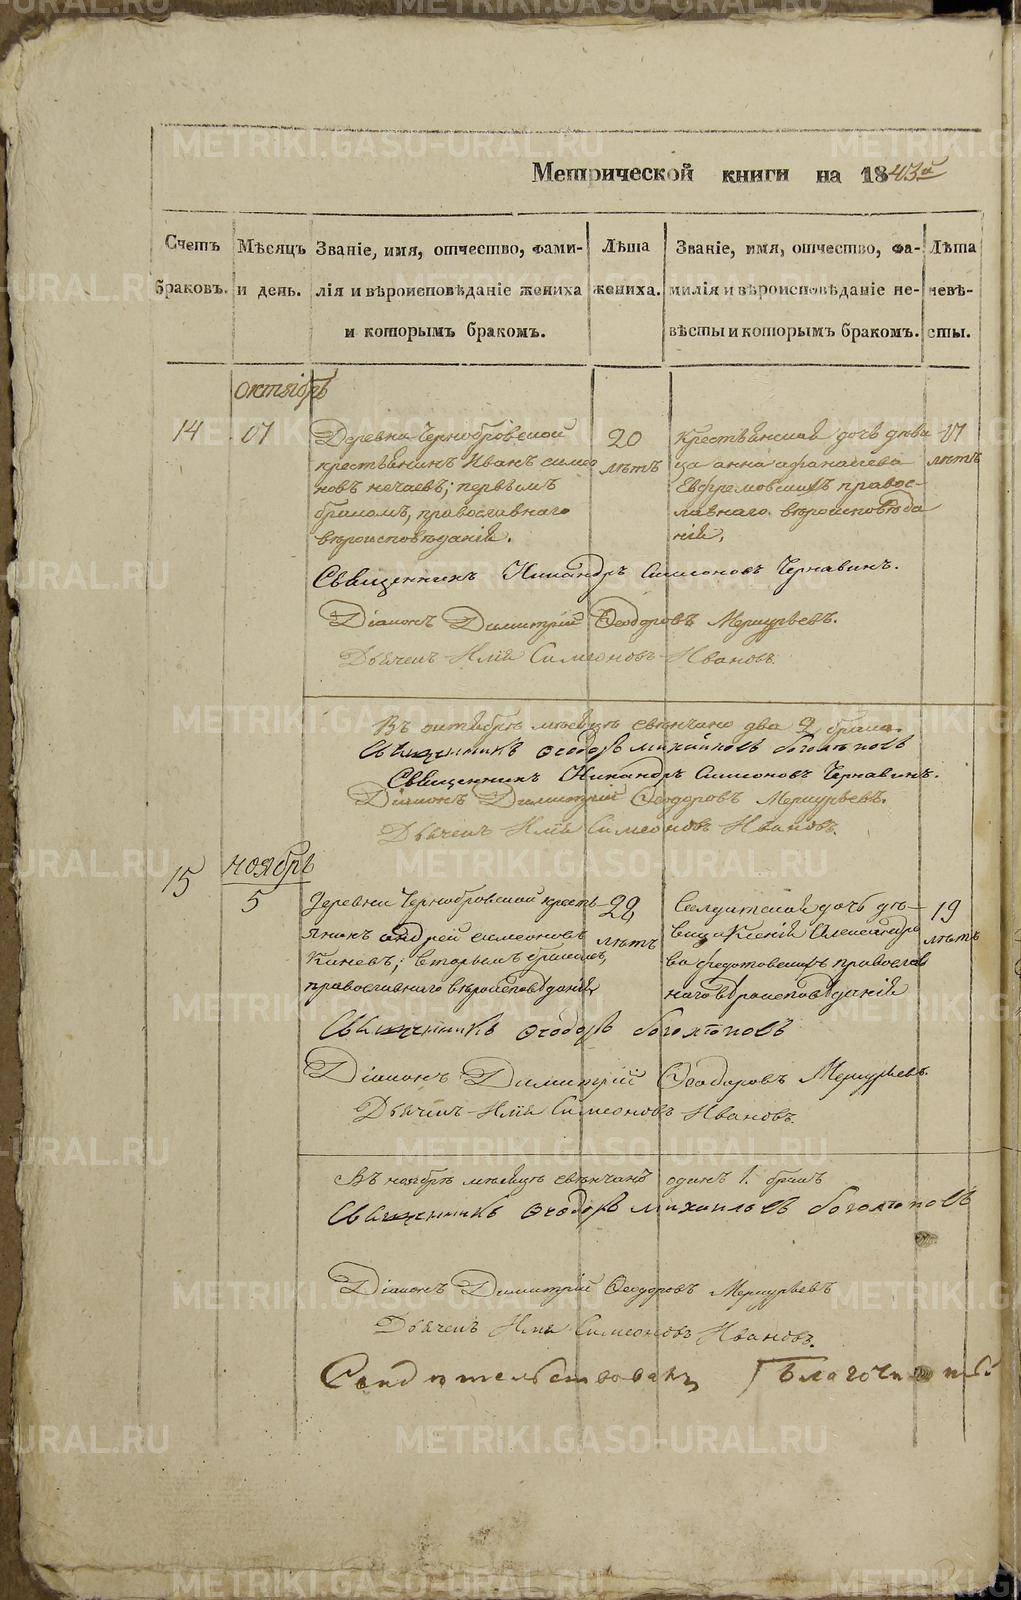 Метрической книги на 1843й
Счетъ браковъ.
Мѣсяцъ и день.
Званіе, имя, отчество, фами-
лія и вѣроисповѣданіе жениха
и которымъ бракомъ.
Лѣта жениха.
Званіе, имя, отчество, фа-
милія и вѣроисповѣданіе не-
вѣсты и которымъ бракомъ.
Лѣта невѣ-
сты.
октябрь
14
Деревни Чернобровской
крестьянинъ Иванъ симео
новъ нечаевъ; первымъ
бракомъ, православнаго
вѣроисповѣданій.
20
лѣтъ
Крестьянская дочь дѣви
ца анна афанасьева
Евфремовыхъ правос-
лавнаго вѣроисповѣда
ній,
лѣтъ
Священникъ Никандръ Симеоновъ Чернавинъ.
Діаконъ Димитрій Ѳеодоровъ Меркурьевъ.
Дьячекъ Илія Симеоновъ Ивановъ.
Въ октябрѣ мѣсяцѣ свѣнчано два 2 брака.
Священникъ Ѳеодоръ Михайловъ Боголѣповъ
Священникъ Никандръ Симеоновъ Чернавинъ.
Діаконъ Димитрій Ѳеодоровъ Меркурьевъ.
Дьячекъ Илія Симеоновъ Ивановъ.
15
ноябрь
5
Деревни Чернобровской кресть
янинъ андрей симеоновъ
вторымъ бракомъ,
православнаго вѣроисповѣданій
28
лѣтъ
Солдатская дочь дѣ-
вица Ксенія Александро
ва Федотовыхъ православ
наго вѣроисповѣданій
19
лѣтъ
Священникъ Ѳеодоръ Боголѣповъ
Діаконъ Димитрій Ѳеодоровъ Меркурьевъ.
Дьячекъ Илія Симеоновъ Ивановъ.
Въ ноябрѣ мѣсяцѣ свѣнчанъ одинъ 1. бракъ
Священникъ Ѳеодоръ Михайловъ Боголѣповъ
Діаконъ Димитрій Ѳеодоровъ Меркурьевъ
Дьячекъ Илія Симеоновъ Ивановъ.
Свидѣтельствовалъ Благочинный
METRIKI.GASO-URAL.RU